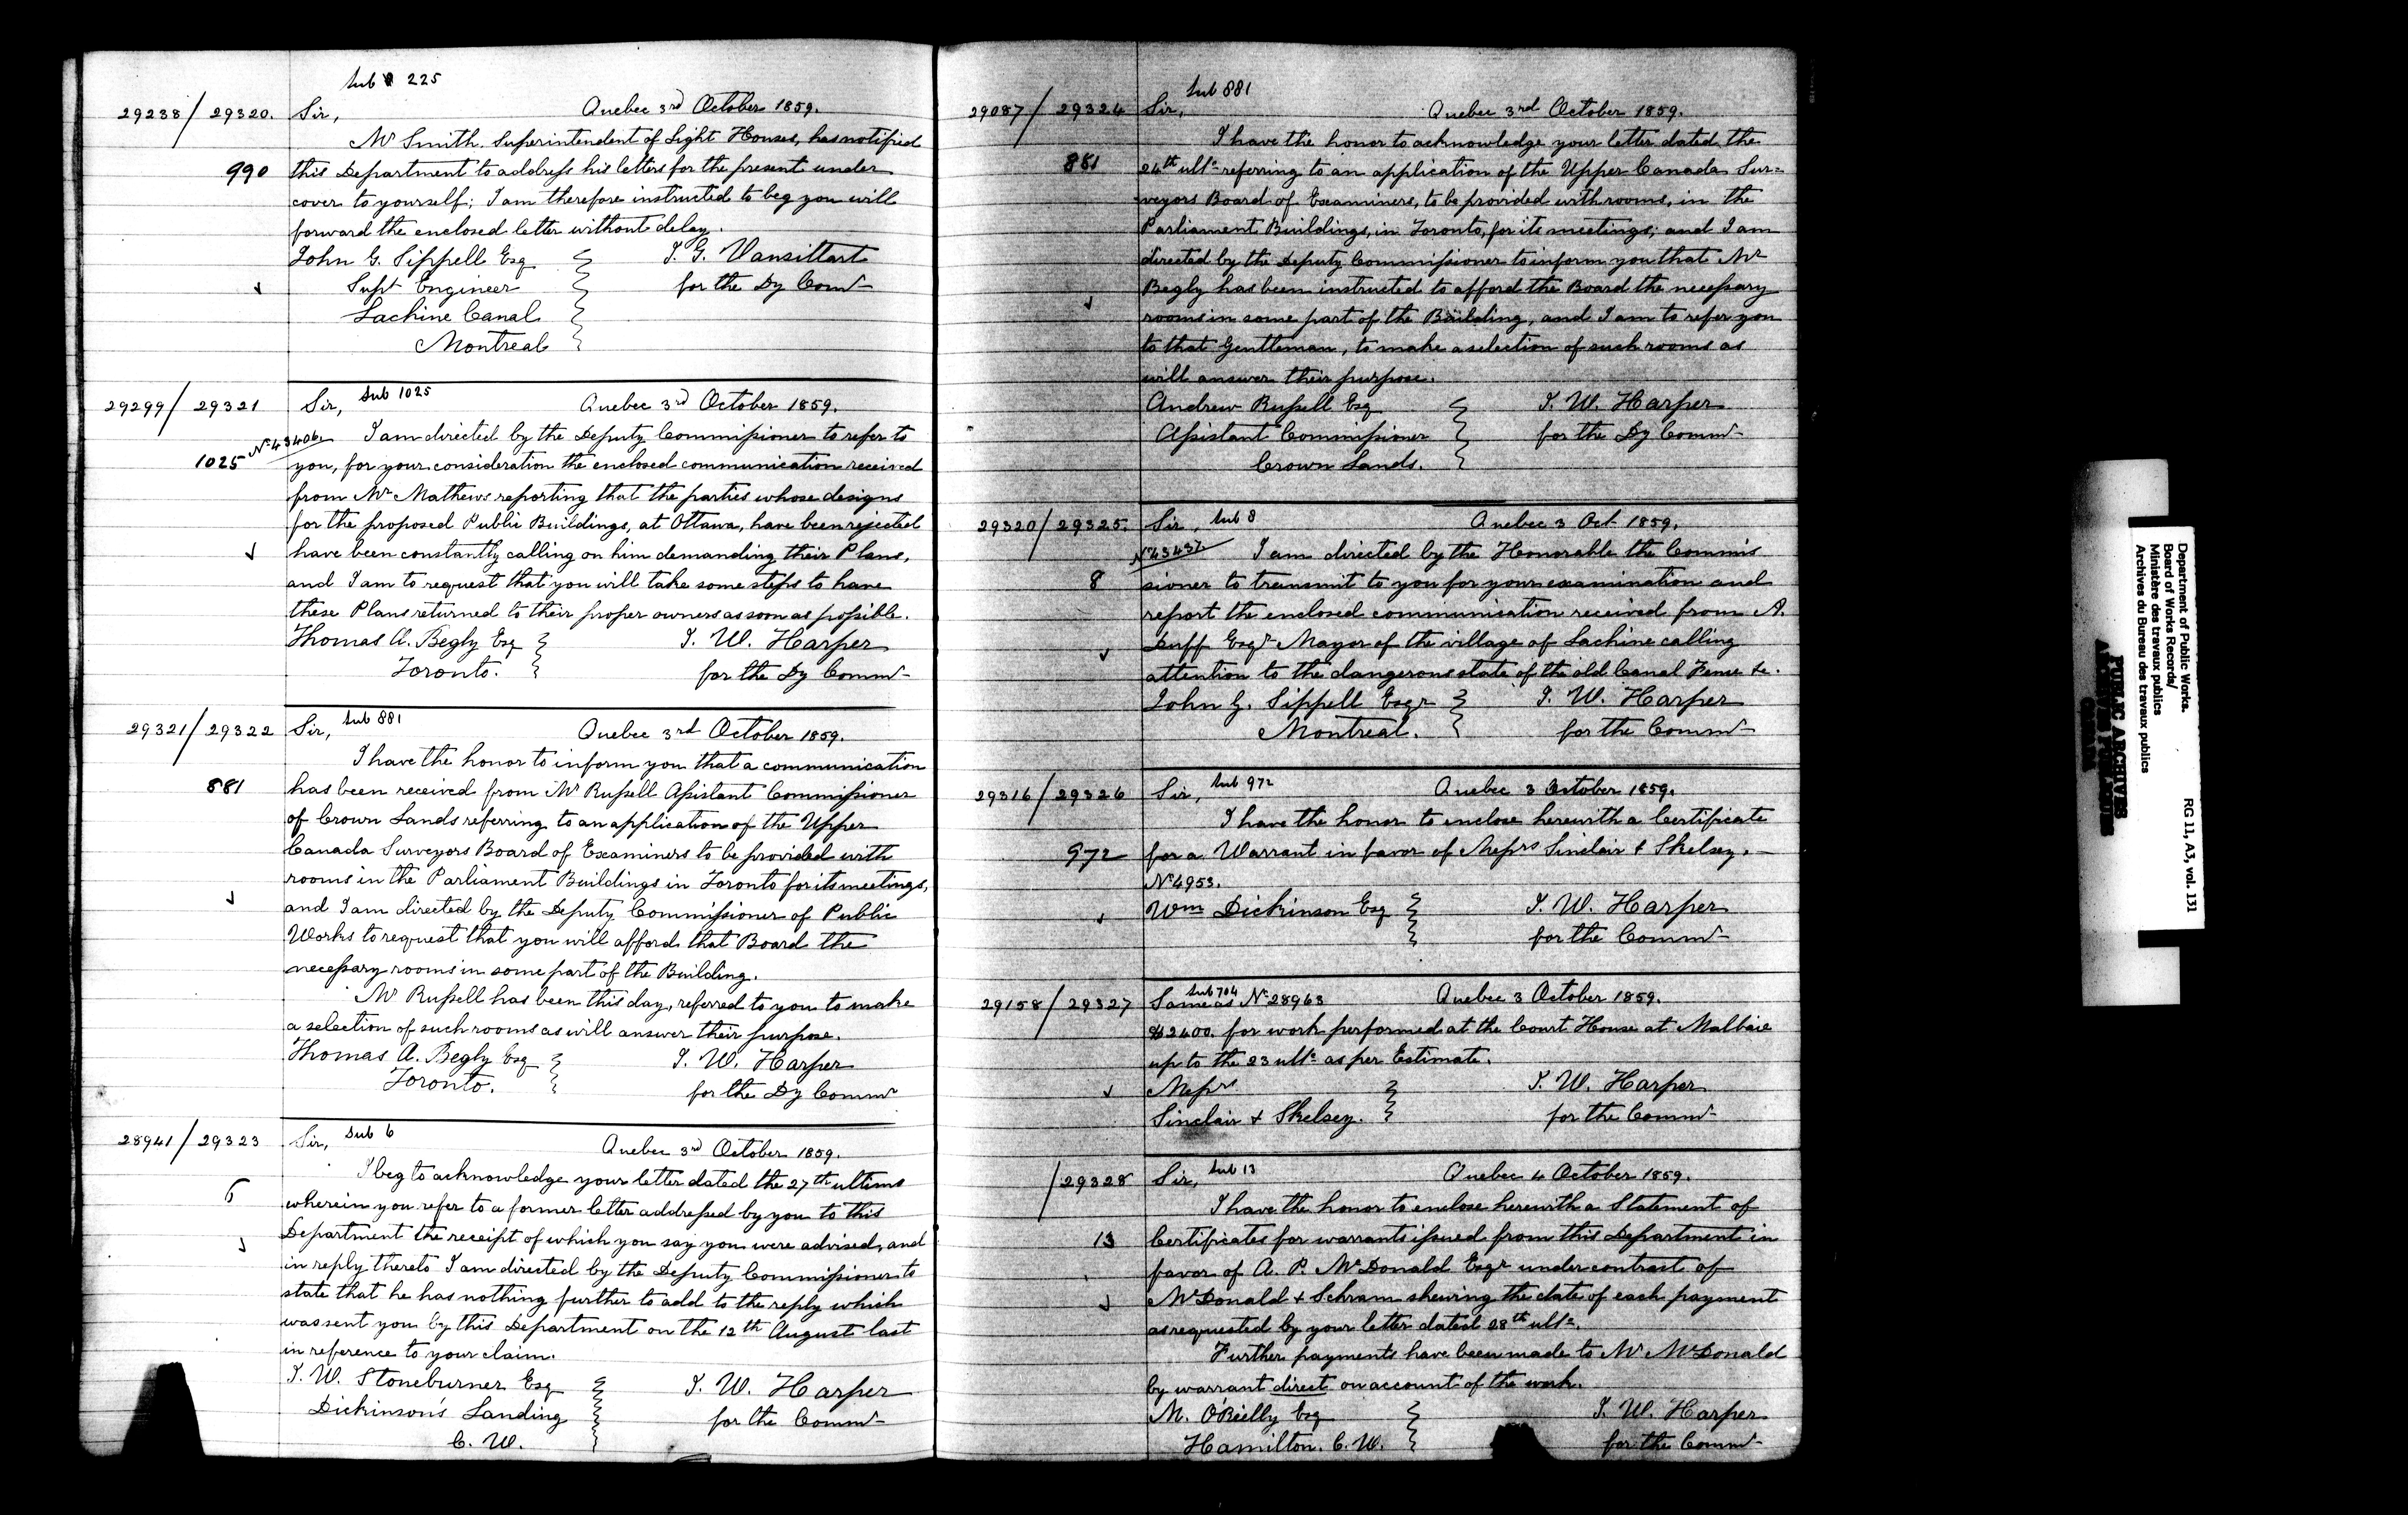 Sub 225
29238/29320. Sir, Quebec 3rd October 1859.
Mr Smith. Superintendent of Light Houses, has notified
990 this Department to address his letters for the present under
cover to yourself; I am therefore instructed to beg you will
forward the enclosed letter without delay.
John G. Sippell Esq J. G. Vansittart
Supt Engineer for the Dy Comr
Lachine Canal
Montreal
Sub 1025
29299/29321 Sir, Quebec 3rd October 1859.
No 43406. I am directed by the Deputy Commissioner to refer to
1025 you, for your consideration the enclosed communication received
from Mr Mathews reporting that the parties whose designs
for the proposed Public Buildings, at Ottawa, have been rejected
have been constantly calling on him demanding their Plans,
and I am to request that you will take some steps to have
these Plans returned to their proper owners as soon as possible.
Thomas A. Begly Esq J. W. Harper
Toronto. for the Dy Commr
Sub 881
29321/29322 Sir, Quebec 3rd October 1859.
I have the honor to inform you that a communication
881 has been received from Mr Russell Assistant Commissioner
of Crown Lands referring to an application of the Upper
Canada Surveyors Board of Examiners to be provided with
rooms in the Parliament Buildings in Toronto for its meetings,
and I am directed by the Deputy Commissioner of Public
Works to request that you will afford that Board the
necessary rooms in some part of the Building.
Mr Russell has been this day, referred to you to make
a selection of such rooms as will answer their purpose.
Thomas A. Begly Esq J. W. Harper
Toronto. for the Dy Commr
Sub 6
28941/29323 Sir, Quebec 3rd October 1859.
I beg to acknowledge your letter dated the 27th ultimo
6 wherein you refer to a former letter addressed by you to this
Department the receipt of which you say you were advised, and
in reply thereto I am directed by the Deputy Commissioner to
state that he has nothing further to add to the reply which
was sent you by this Department on the 12th August last
in reference to your claim.
J. W. Stoneburner Esq J. W. Harper
Dickinson's Landing for the Commr
C. W.
Sub 881
29087/29324 Sir, Quebec 3rd October 1859.
I have the honor to acknowledge your letter dated the
881 24th ulto referring to an application of the Upper Canada Sur=
veyors Board of Examiners, to be provided with rooms, in the
Parliament Buildings, in Toronto, for its meetings; and I am
directed by the Deputy Commissioner to inform you that Mr
Begly has been instructed to afford the Board the necessary
rooms in some part of the Building, and I am to refer you
to that Gentleman, to make a selection of such rooms as
will answer their purpose.
Andrew Russell Esq J. W. Harper
Assistant Commissioner for the Dy Commr
Crown Lands.
29320/29325. Sir, Sub 8 Quebec 3 Oct 1859.
No 43437. I am directed by the Honorable the Commis
8 sioner to transmit to you for your examination and
report the enclosed communication received from A.
Duff Esqr Mayor of the village of Lachine calling
attention to the dangerous state of the old Canal Fence &c.
John G. Sippell Esqr J. W. Harper
Montreal. for the Commr
29316/29326 Sir, Sub 972 Quebec 3 October 1859.
I have the honor to enclose herewith a Certificate
972 for a Warrant in favor of Messrs Sinclair & Skelsey.
No 4953.
Wm Dickinson Esq J. W. Harper
for the Commr
Sub 704
29158/29327 Same as No 28963 Quebec 3 October 1859.
$2400. for work performed at the Court House at Malbaie
up to the 23 ulto as per Estimate.
Messrs J. W. Harper
Sinclair & Skelsey. for the Commr
/29328 Sir, Sub 13 Quebec 4 October 1859.
I have the honor to enclose herewith a Statement of
13 Certificates for warrants issued from this Department in
favor of A. P. McDonald Esqr under contract of
McDonald & Schram shewing the date of each payment
as requested by your letter dated 28th ulto.
Further payments have been made to Mr McDonald
by warrant direct on account of the work.
M. O'Reilly Esq J. W. Harper
Hamilton. C. W. for the Commr
Department of Public Works.
Board of Works Records/
Ministère des travaux publics
Archives du Bureau des travaux publics
RG 11, A3, vol. 131
PUBLIC ARCHIVES